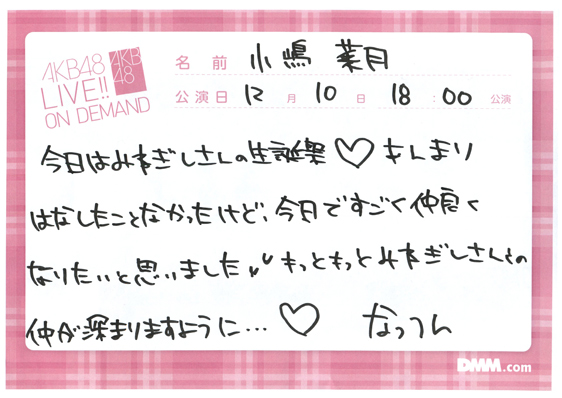 AKB48
LIVE!!
ON DEMAND
AKB
48
名前 小嶋 菜月
公演日 12月10日 18:00公演
今日はみねぎしさんの生誕祭♡あんまり
はなしたことなかったけど、今日ですごく仲良く
なりたいと思いました もっともっとみねぎしさんとの
仲が深まりますように…♡ なっつん
DMM.com